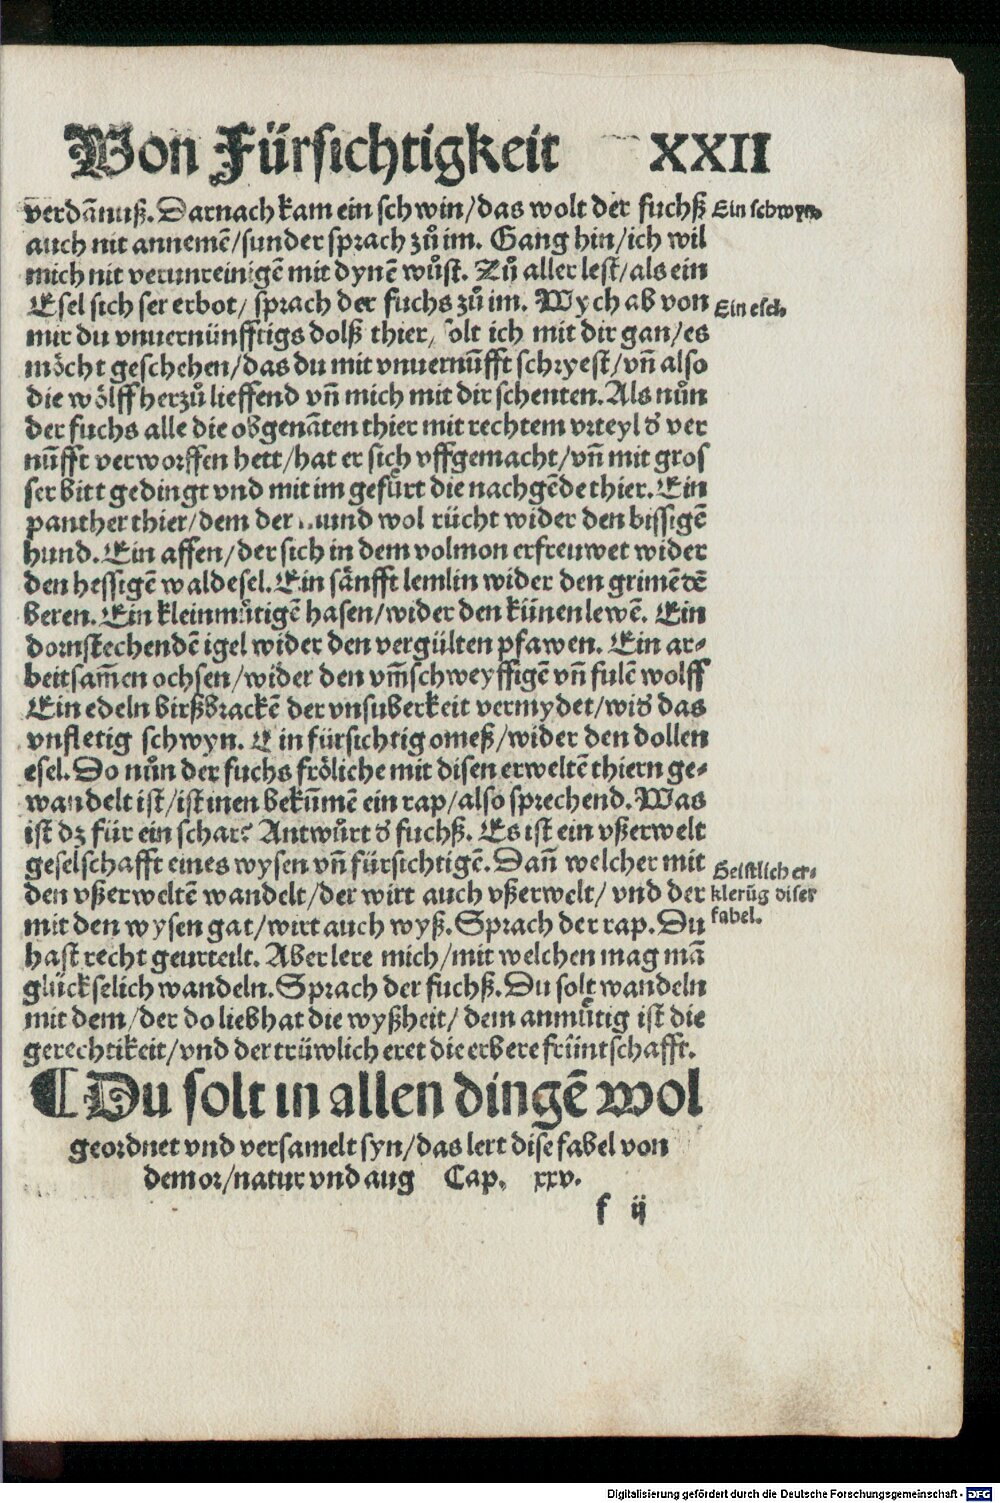 Von Fürsichtigkeit XXII
verdãnuß. Darnach kam ein schwin/das wolt der fuchß
Ein schwyn.
auch nit annemẽ/sunder sprach zů im. Gang hin/ich wil
mich nit verunreinigẽ mit dynẽ wůst. Zů aller lest/als ein
Esel sich ser erbot/ sprach der fuchs zů im. Wych ab von
Ein esel.
mir du vnuernünfftigs dolß thier, solt ich mit dir gan/es
möcht geschehen/das du mit vnuernũfft schryest/vñ also
die wölff herzů lieffend vñ mich mit dir schenten. Als nůn
der fuchs alle die obgenãten thier mit rechtem vrteyl d' ver
nũfft verworffen hett/hat er sich vffgemacht/vñ mit gros
ser bitt gedingt vnd mit im gefürt die nachgẽde thier. Ein
panther thier/dem der mund wol rücht wider den bissigẽ
hund. Ein affen/der sich in dem volmon erfreuwet wider
den hessigẽ waldesel. Ein sänfft lemlin wider den grimẽdẽ
beren. Ein kleinmůtigẽ hasen/wider den künen lewẽ. Ein
dornstechendẽ igel wider den vergülten pfawen. Ein ar-
beitsam̃en ochsen/wider den vm̃schweyffigẽ vñ fulẽ wolff
Ein edeln birßbrackẽ der vnsuberkeit vermydet/wid' das
vnfletig schwyn. Ein fürsichtig omeß/wider den dollen
esel. Do nůn der fuchs fröliche mit disen erweltẽ thiern ge-
wandelt ist/ist inen bekũmẽ ein rap/also sprechend. Was
ist dz für ein schar? Antwůrt d' fuchß. Es ist ein vßerwelt
geselschafft eines wysen vñ fürsichtigẽ. Dañ welcher mit
Geistlich er-
den vßerweltẽ wandelt/der wirt auch vßerwelt/ vnd der
klerũg diser
mit den wysen gat/wirt auch wyß. Sprach der rap. Du
fabel.
hast recht geurteilt. Aber lere mich/mit welchen mag mã
glückselich wandeln. Sprach der fuchß. Du solt wandeln
mit dem/der do lieb hat die wyßheit/ dem anmůtig ist die
gerechtikeit/vnd der trüwlich eret die erbere früntschafft.
¶ Du solt in allen dingẽ wol
geordnet vnd versamelt syn/das lert dise fabel von
dem or/natur vnd aug Cap. xxv.
f ij
Digitalisierung gefördert durch die Deutsche Forschungsgemeinschaft - DFG